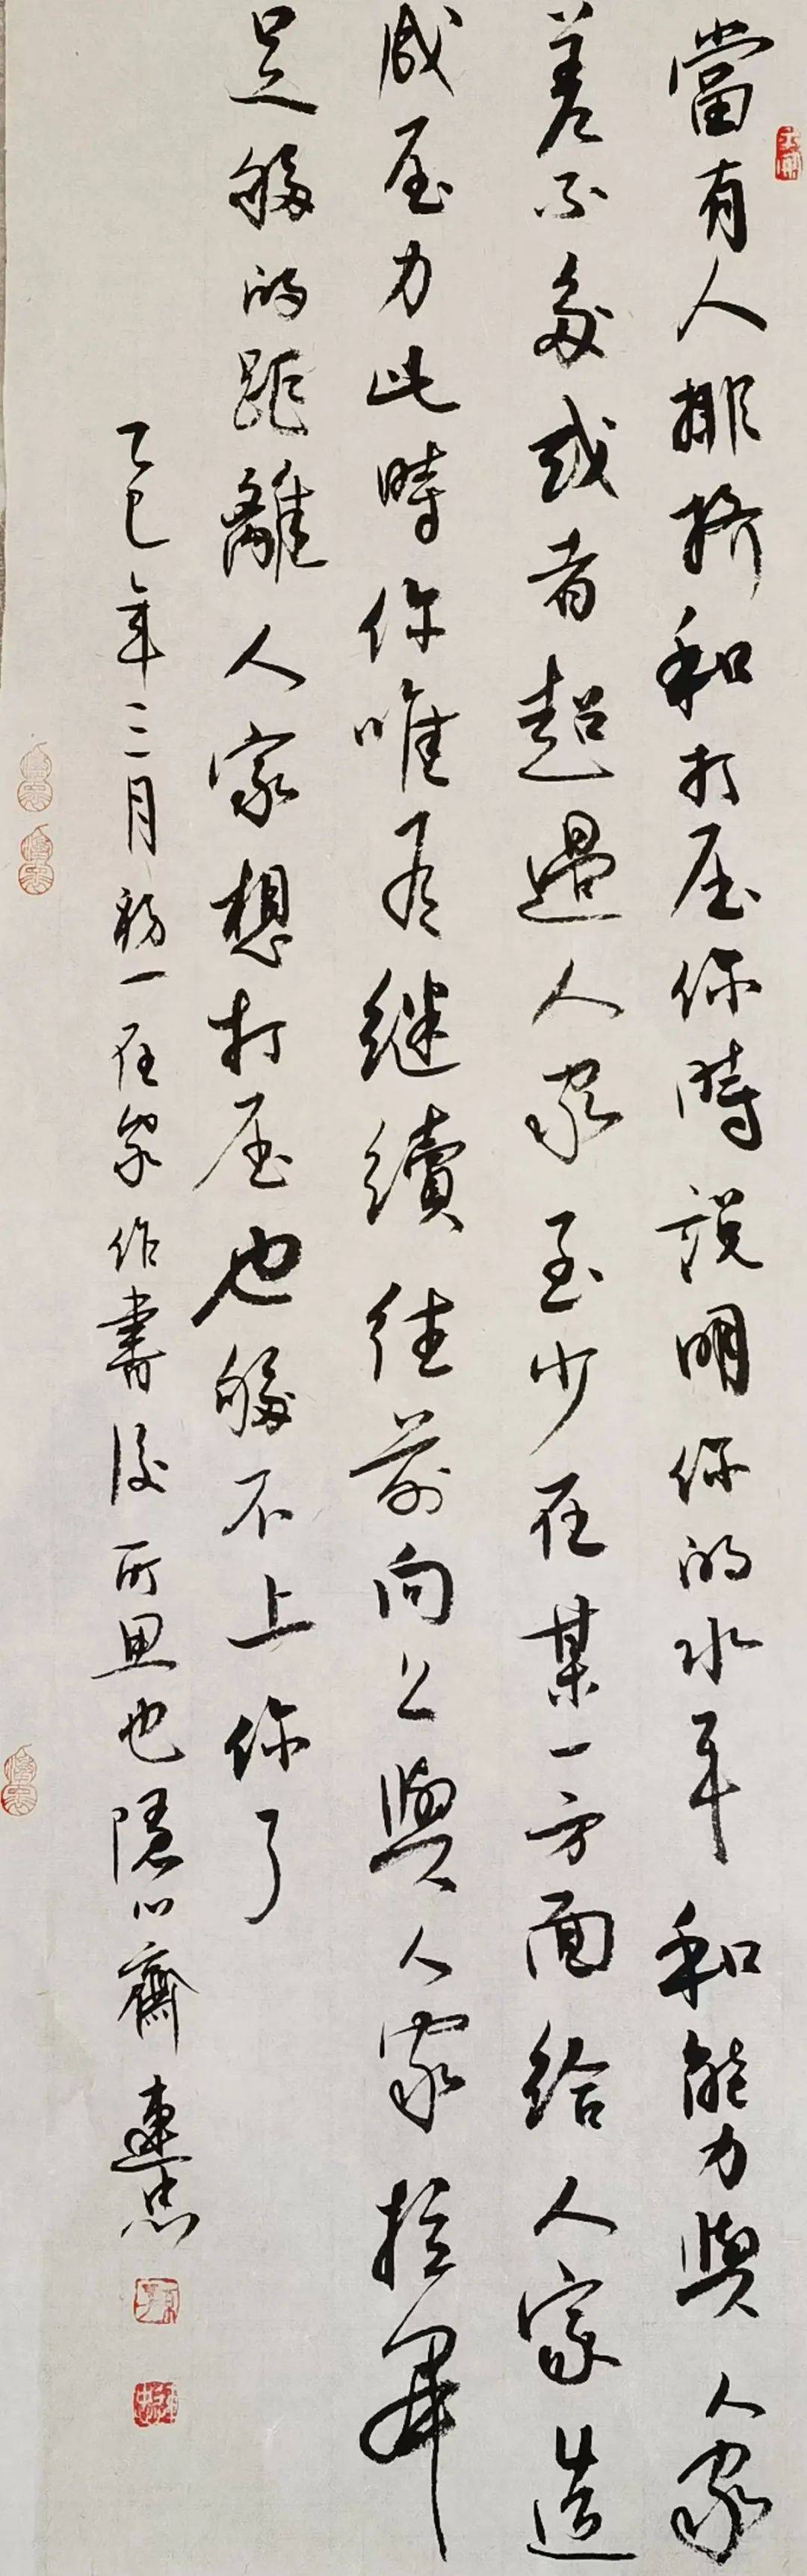 當有人排挤和打压你時説明你的水平和能力與人家
差不多或者超過人家至少在某一方面給人家造
成压力此時你唯有继續往前向上與人家拉开
足够的距離人家想打压也够不上你了
乙巳年三月初一在家作書後所思也隱心齋連忠